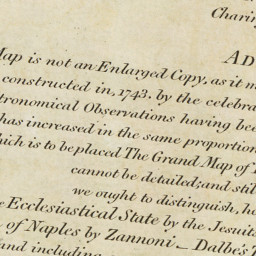 Charin
AD
Map is not an Enlarged Copy, as it m
constructed in, 1743, by the celebra
tronomical Observations having bee
has increased in the same proportion
hich is to be placed The Grand Map of
cannot be detailed; and still
we ought to distinguish, ho
Ecclesiastical State by the Jesuits
of Naples by Zannoni._ Dalbe's
and including